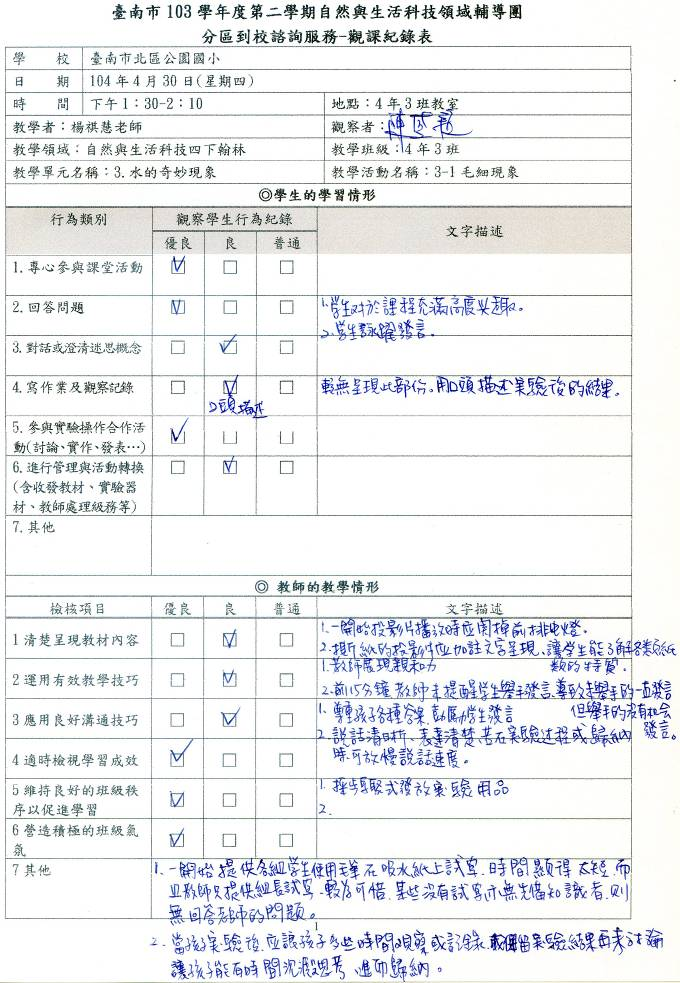 臺南市 103 學年度第二學期自然與生活科技領域輔導團
分區到校諮詢服務-觀課紀錄表
學 校 臺南市北區公園國小
日 期 104年4月30日(星期四)
時 間 下午1：30-2：10 地點：4年3班教室
教學者：楊祺慧老師 觀察者：
教學領域：自然與生活科技四下翰林 教學班級：4年3班
教學單元名稱：3.水的奇妙現象 教學活動名稱：3-1毛細現象
◎學生的學習情形
行為類別 觀察學生行為紀錄 文字描述
優良 良 普通
1.專心參與課堂活動
2.回答問題 1.學生对於課程充滿高度兴趣。
2.學生踴躍發言。
3.對話或澄清迷思概念
4.寫作業及觀察記錄 較無呈現此部份。用口頭描述实驗後的結果。
口頭描述
5.參與實驗操作合作活
動(討論、實作、發表…)
6.進行管理與活動轉換
(含收發教材、實驗器
材、教師處理級務等)
7.其他
◎ 教師的教學情形
檢核項目 優良 良 普通 文字描述
1 清楚呈現教材內容 1.一開始投影片播放時应關掉前排电燈。
2.撕紙的投影片应加註文字呈現、讓學生能了解各類紙
類的特質。
2 運用有效教學技巧 1.教師展現親和力
2.前15分鐘教師未提醒學生舉手發言,導致未舉手的一直發言
但舉手的沒有机会
發言。
3 應用良好溝通技巧 1.尊重孩子各種答案,鼓勵學生發言
2.說話清晰、表達清楚,若在实驗过程或歸納
時可放慢說話速度。
4 適時檢視學習成效
5 維持良好的班級秩
序以促進學習 1. 式發放实驗用品
2.
6 營造積極的班級氣
氛
7 其他 1.一開始提供各組學生使用毛筆在吸水紙上試寫,時間顯得太短,而
且教師只提供組長試寫,較為可惜,某些沒有試寫亦無先備知識者,則
無回答老師的問題。
1
2.當孩子实驗後,应讓孩子多些時間觀察或記錄, 实驗結果再來討論
讓孩子能有時間沉澱思考,進而歸納。